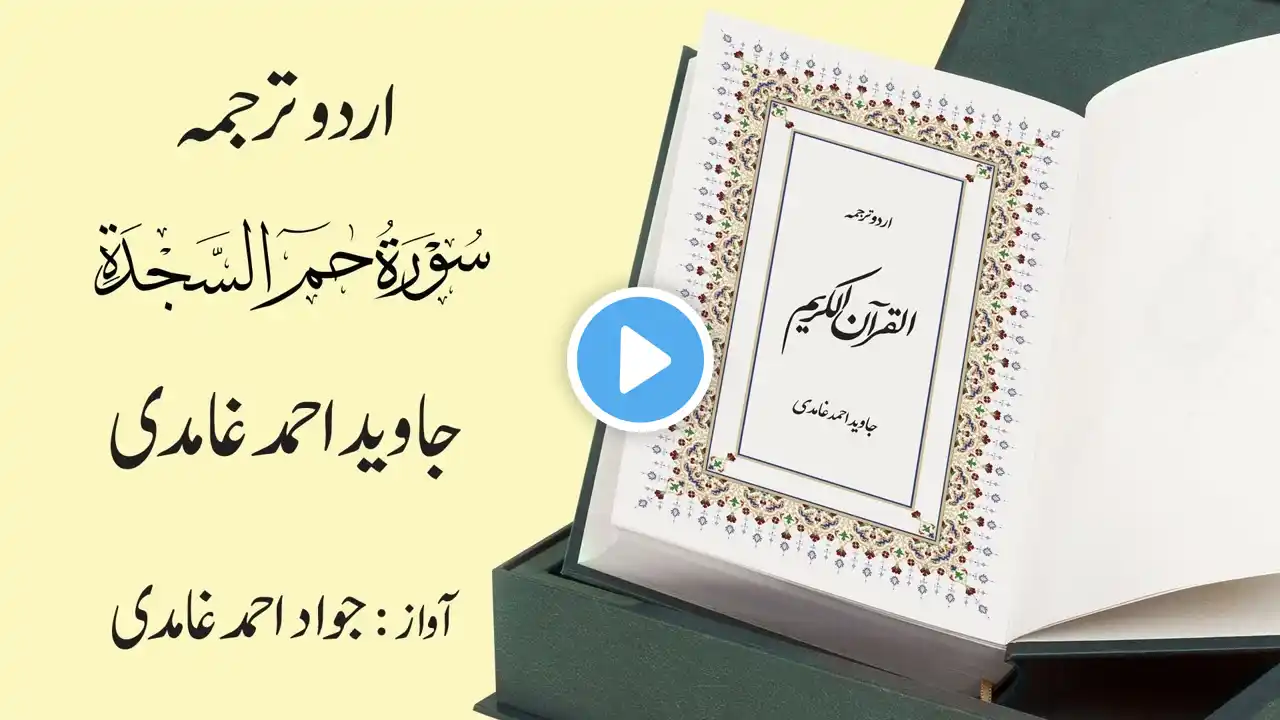 اردو ترجمہ
سُوْرَۃُ حٰمٓ السَّجْدَۃِ
جاوید احمد غامدی
آواز : جواد احمد غامدی
اردو ترجمہ
القرآن الکریم
جاوید احمد غامدی